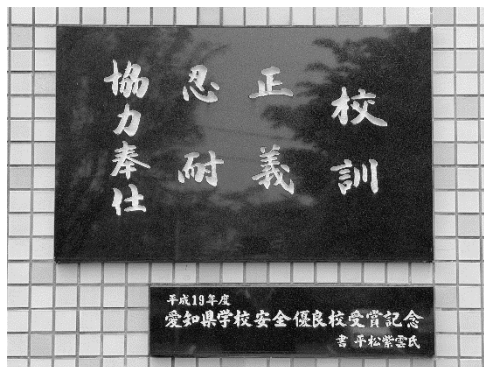 校訓
正義
忍耐
協力奉仕
平成19年度
愛知県学校安全優良校受賞記念
書 平松紫雲氏